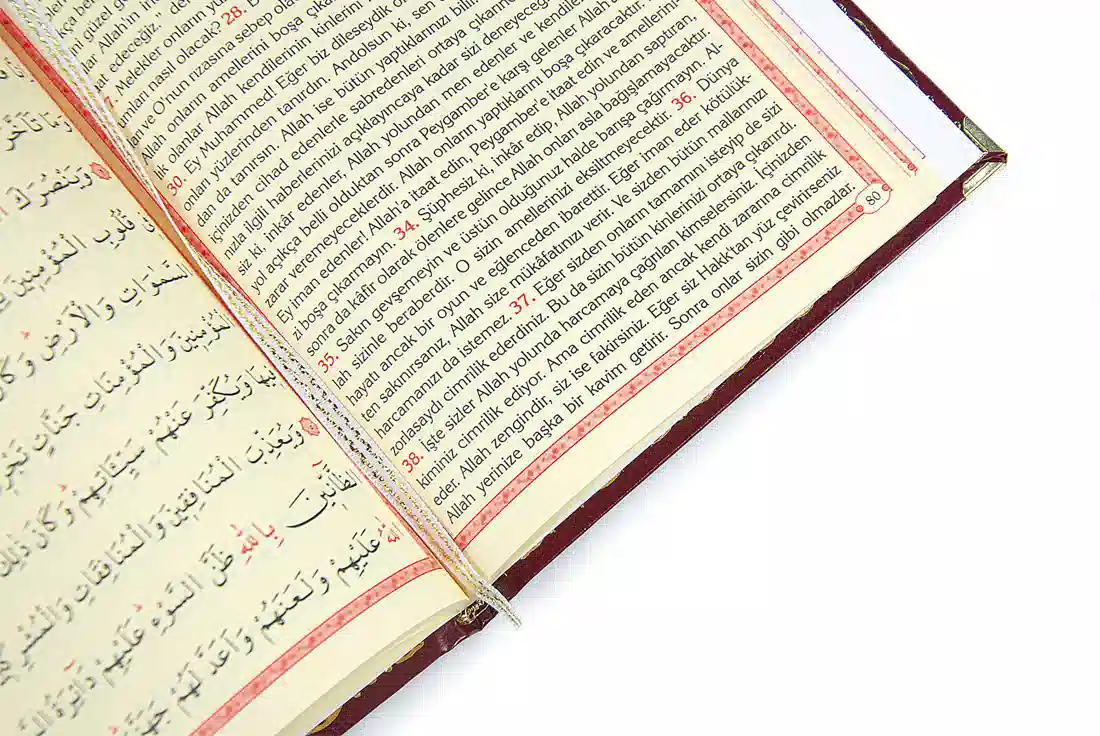 Melekler onların
nasıl olacak? 28.
ve O'nun rızasına sebep
onların amellerini boşa
olanlar Allah kendilerinin kinlerini
30. Ey Muhammed! Eğer biz dileseydik
onları yüzlerinden tanırdın. Andolsun ki, sen
dan da tanırsın. Allah ise bütün yaptıklarınızı
içinizden cihad edenlerle sabredenleri ortaya
nızla ilgili haberlerinizi açıklayıncaya kadar sizi
siz ki, inkâr edenler, Allah yolundan men edenler ve
yol açıkça belli olduktan sonra Peygamber'e karşı gelenler
zarar veremeyeceklerdir. Allah onların yaptıklarını boşa çıkaracaktır.
Ey iman edenler! Allah'a itaat edin, Peygamber'e itaat edin ve amellerini
zi boşa çıkarmayın. 34. Şüphesiz ki, inkâr edip, Allah yolundan saptıran,
sonra da kâfir olarak ölenlere gelince Allah onları asla bağışlamayacaktır.
35. Sakın gevşemeyin ve üstün olduğunuz halde barışa çağırmayın. Al-
lah sizinle beraberdir. O sizin amellerinizi eksiltmeyecektir. 36. Dünya
hayatı ancak bir oyun ve eğlenceden ibarettir. Eğer iman eder kötülük-
ten sakınırsanız, Allah size mükâfatınızı verir. Ve sizden bütün mallarınızı
harcamamızı da istemez. 37. Eğer sizden onların tamamını isteyip de sizi
zorlasaydı cimrilik ederdiniz. Bu da sizin bütün kinlerinizi ortaya çıkarırdı.
38. İşte sizler Allah yolunda harcamaya çağrılan kimselersiniz. İçinizden
kiminiz cimrilik ediyor. Ama cimrilik eden ancak kendi zararına cimrilik
eder. Allah zengindir, siz ise fakirsiniz. Eğer siz Hakk'tan yüz çevirirseniz
Allah yerinize başka bir kavim getirir. Sonra onlar sizin gibi olmazlar.
80
وَيَنْصُرَكَ
قُلُوبِ الْمُؤْمِنِينَ
السَّمٰوَاتِ وَالْاَرْضِ وَكَانَ
وَالْمُؤْمِنَاتِ جَنَّاتٍ تَجْرِي
وَيُكَفِّرَ عَنْهُمْ سَيِّـَٔاتِهِمْ وَكَانَ ذٰلِكَ
وَيُعَذِّبَ الْمُنَافِقِينَ وَالْمُنَافِقَاتِ وَالْمُشْرِكِينَ
الظَّٓانِّينَ بِاللّٰهِ ظَنَّ السَّوْءِ عَلَيْهِمْ دَٓائِرَةُ
اللّٰهُ عَلَيْهِمْ وَلَعَنَهُمْ وَاَعَدَّ لَهُمْ جَهَنَّمَ